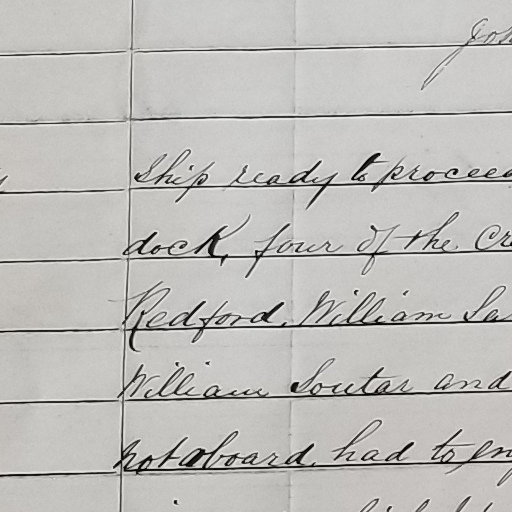 Joh
Ship ready to proceed
dock, four of the Cr
Redford. William Sa
William Soutar and
not aboard. had to en